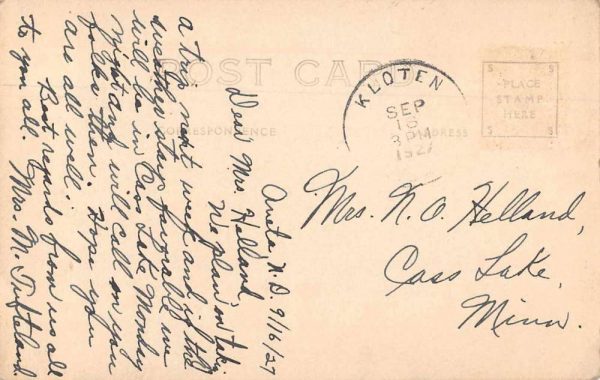 POST CARD
CORRESPONDENCE
ADDRESS
PLACE
STAMP
HERE
KLOTEN
SEP
16
3 PM
1927
Aneta N.D. 9/16/27
Dear Mrs. Helland,
We plan on takg.
a trip next week and if the
weather stays favorable we
will be in Cass Lake Monday
night and will call on you
folks then. Hope you
are all well.
Best regards from us all
to you all. Mrs. M. Tufteland.
Mrs. N. O. Helland,
Cass Lake,
Minn.